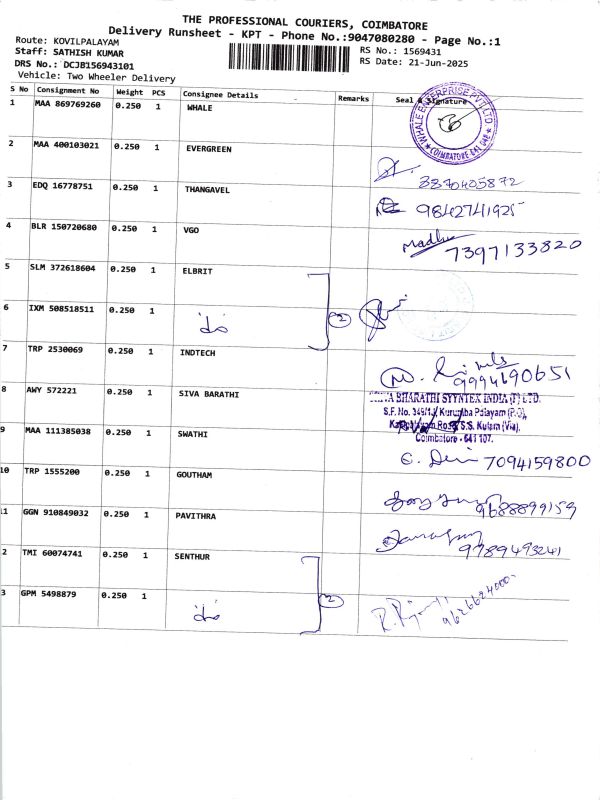 THE PROFESSIONAL COURIERS, COIMBATORE
Delivery Runsheet - KPT - Phone No.:9047080280 - Page No.:1
Route: KOVILPALAYAM
Staff: SATHISH KUMAR
RS No.: 1569431
DRS No.: DCJB156943101
RS Date: 21-Jun-2025
Vehicle: Two Wheeler Delivery
S No Consignment No Weight PCS Consignee Details Remarks Seal & Signature
1 MAA 869769260 0.250 1 WHALE
WHALE ENTERPRISE PVT LTD
COIMBATORE 641 048
2 MAA 400103021 0.250 1 EVERGREEN
8870405872
3 EDQ 16778751 0.250 1 THANGAVEL 9842741925
4 BLR 150720680 0.250 1 VGO Madhu 7397133820
5 SLM 372618604 0.250 1 ELBRIT
6 IXM 508518511 0.250 1 do 2
7 TRP 2530069 0.250 1 INDTECH 9994690651
8 AWY 572221 0.250 1 SIVA BARATHI
SIVA BHARATHI SYYNTEX INDIA (P) LTD.
S.F. No. 345/1, Kurumba Palayam (P.O),
Road, S.S. Kulam (Via),
Coimbatore - 641 107.
9 MAA 111385038 0.250 1 SWATHI 7094159800
10 TRP 1555200 0.250 1 GOUTHAM 9688899159
11 GGN 910849032 0.250 1 PAVITHRA 9789493241
2 TMI 60074741 0.250 1 SENTHUR
3 GPM 5498879 0.250 1 do 2 9626624000